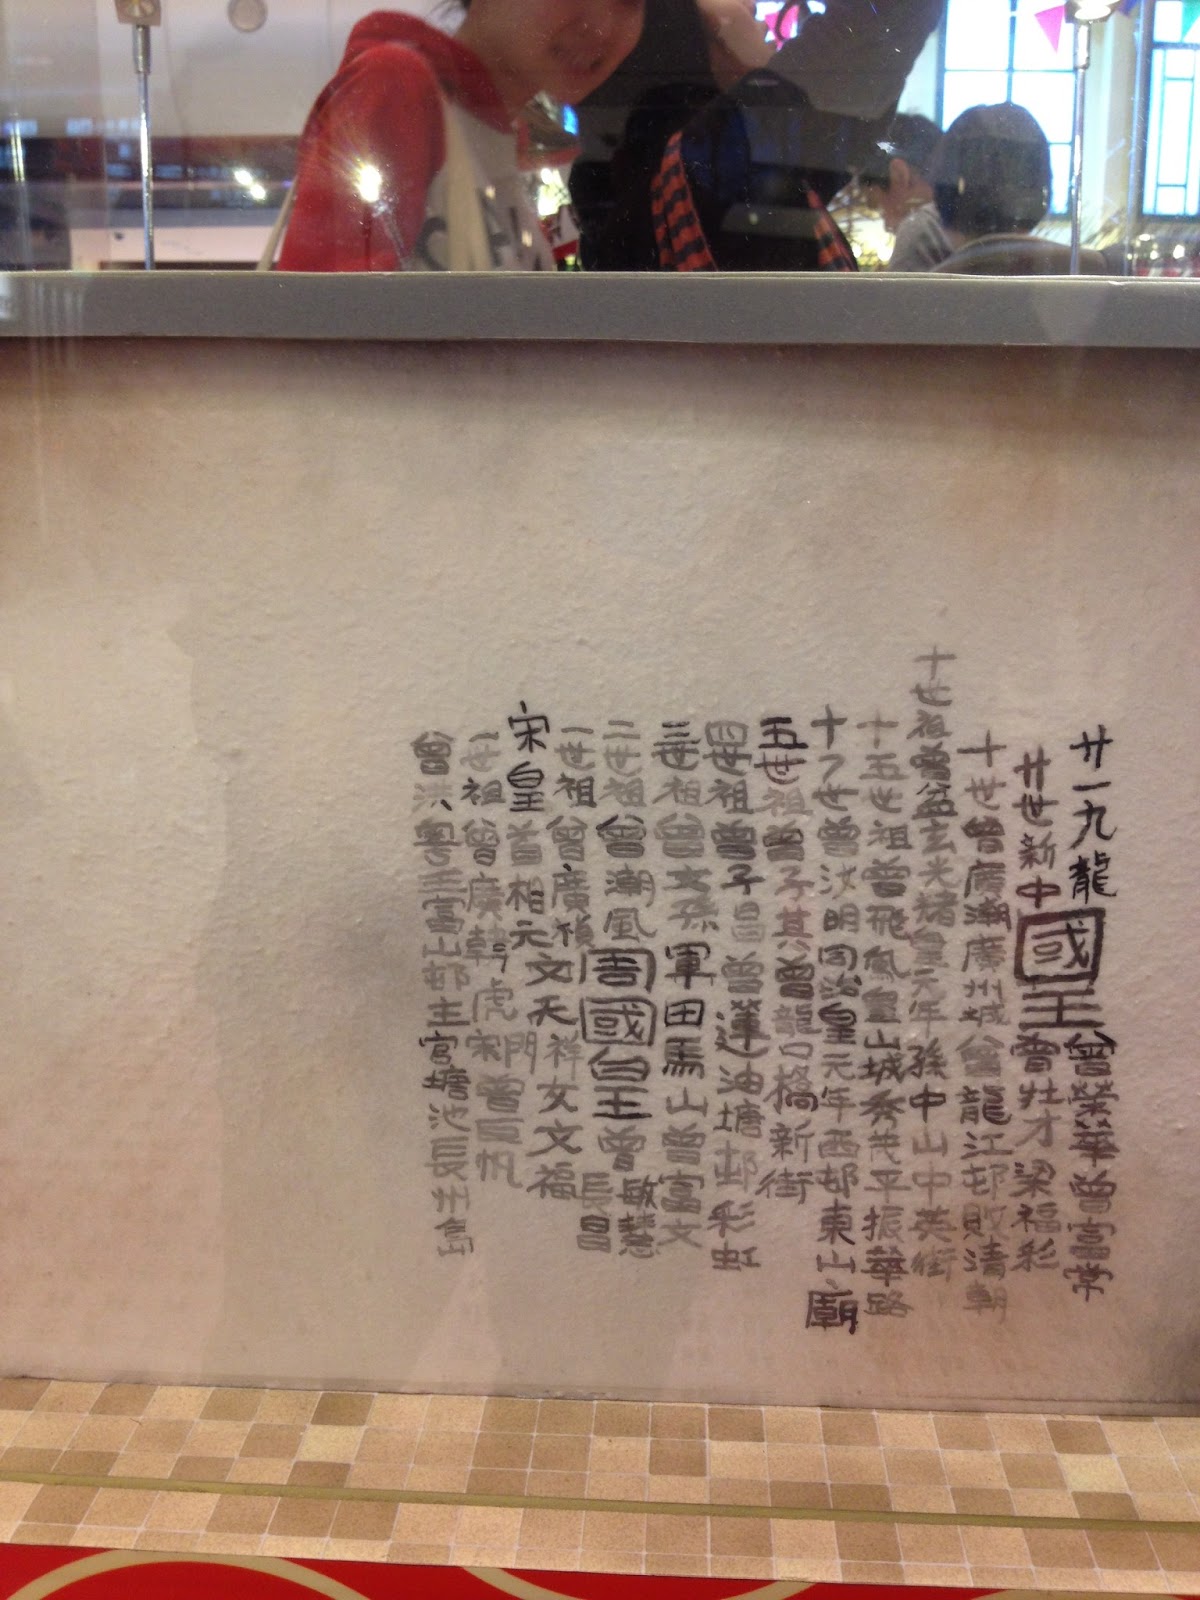 廿一九龍
廿世新中
國王
曾榮華曾富常
曾壯才梁福彩
十世曾廣潮廣州城曾龍江邨敗清朝
十世祖曾益玄光緒皇元年孫中山中英街
十五世祖曾飛鳳皇山城秀茂平振華路
十了世曾汝明同治皇元年西邨東山廟
五世祖曾子其曾龍口橋新街
四世祖曾子昌曾蓮油塘邨彩虹
三世祖曾文孫軍田馬山曾富文
二世祖曾潮風周國皇王曾敏慧長昌
一世祖曾廣禎文天祥女文福
宋皇首相元
一世祖曾廣韓虎宋門曾巨帆
曾洪粵王富山邨主官塘池長州島